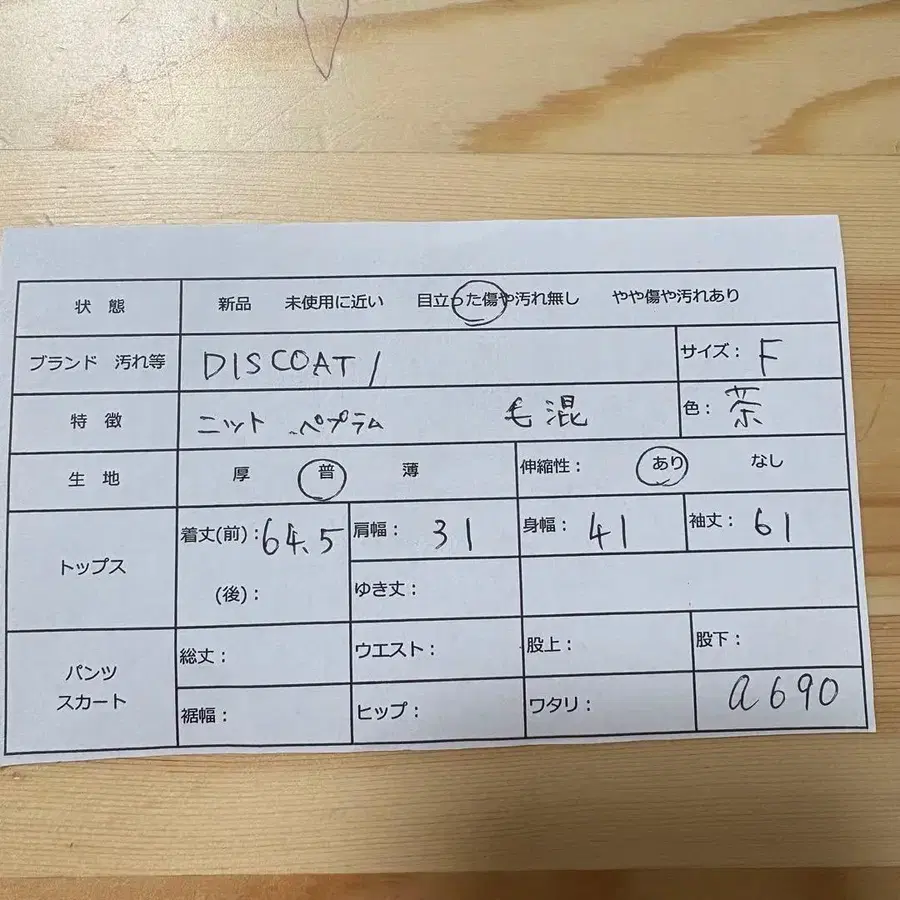 状 態 新品 未使用に近い 目立った傷や汚れ無し やや傷や汚れあり
ブランド 汚れ等 DISCOAT / サイズ： F
特 徴 ニット ペプラム 毛混 色： 茶
生 地 厚 普 薄 伸縮性： あり なし
トップス 着丈(前)：64.5 肩幅： 31 身幅： 41 袖丈： 61
(後)： ゆき丈：
パンツ スカート 総丈： ウエスト： 股上： 股下：
裾幅： ヒップ： ワタリ： a690